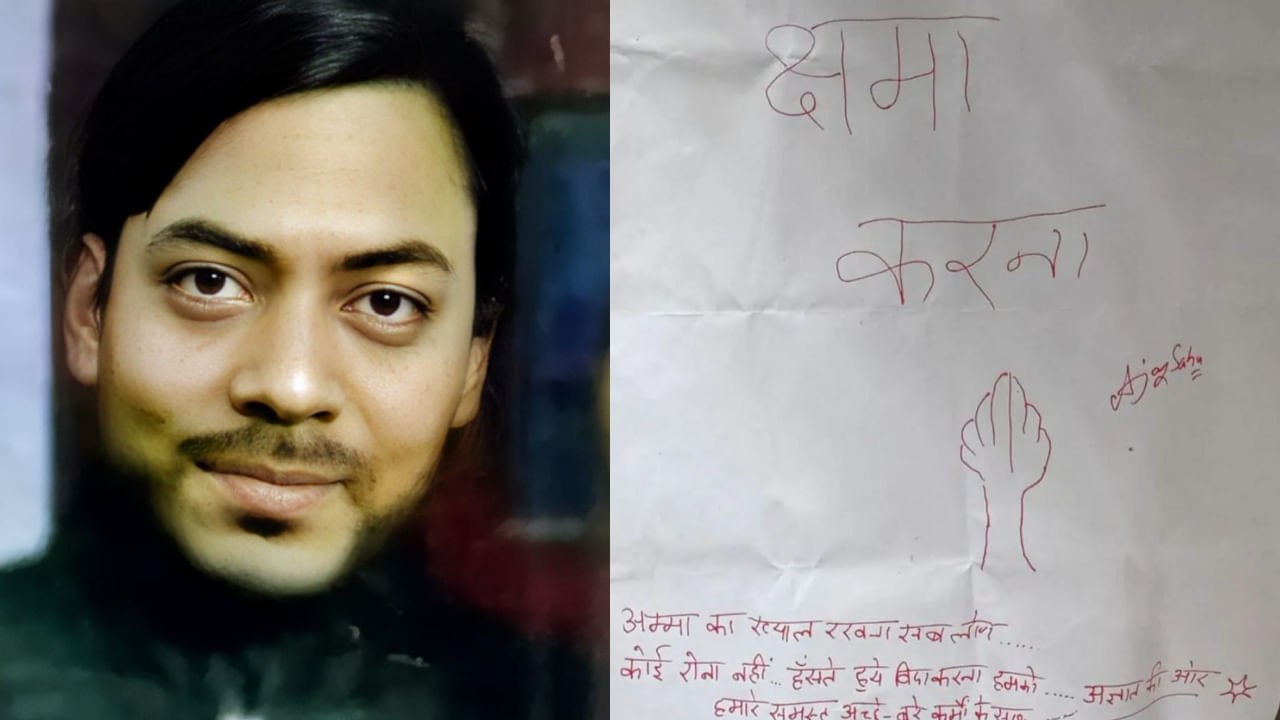 क्षमा
करना
Ajay Sahu
अम्मा का ख्याल रखना सब लोग......
कोई रोना नहीं... हँसते हुये विदा करना हमको..... अज्ञात की ओर
हमारे समस्त अच्छे-बुरे कर्मों के साथ